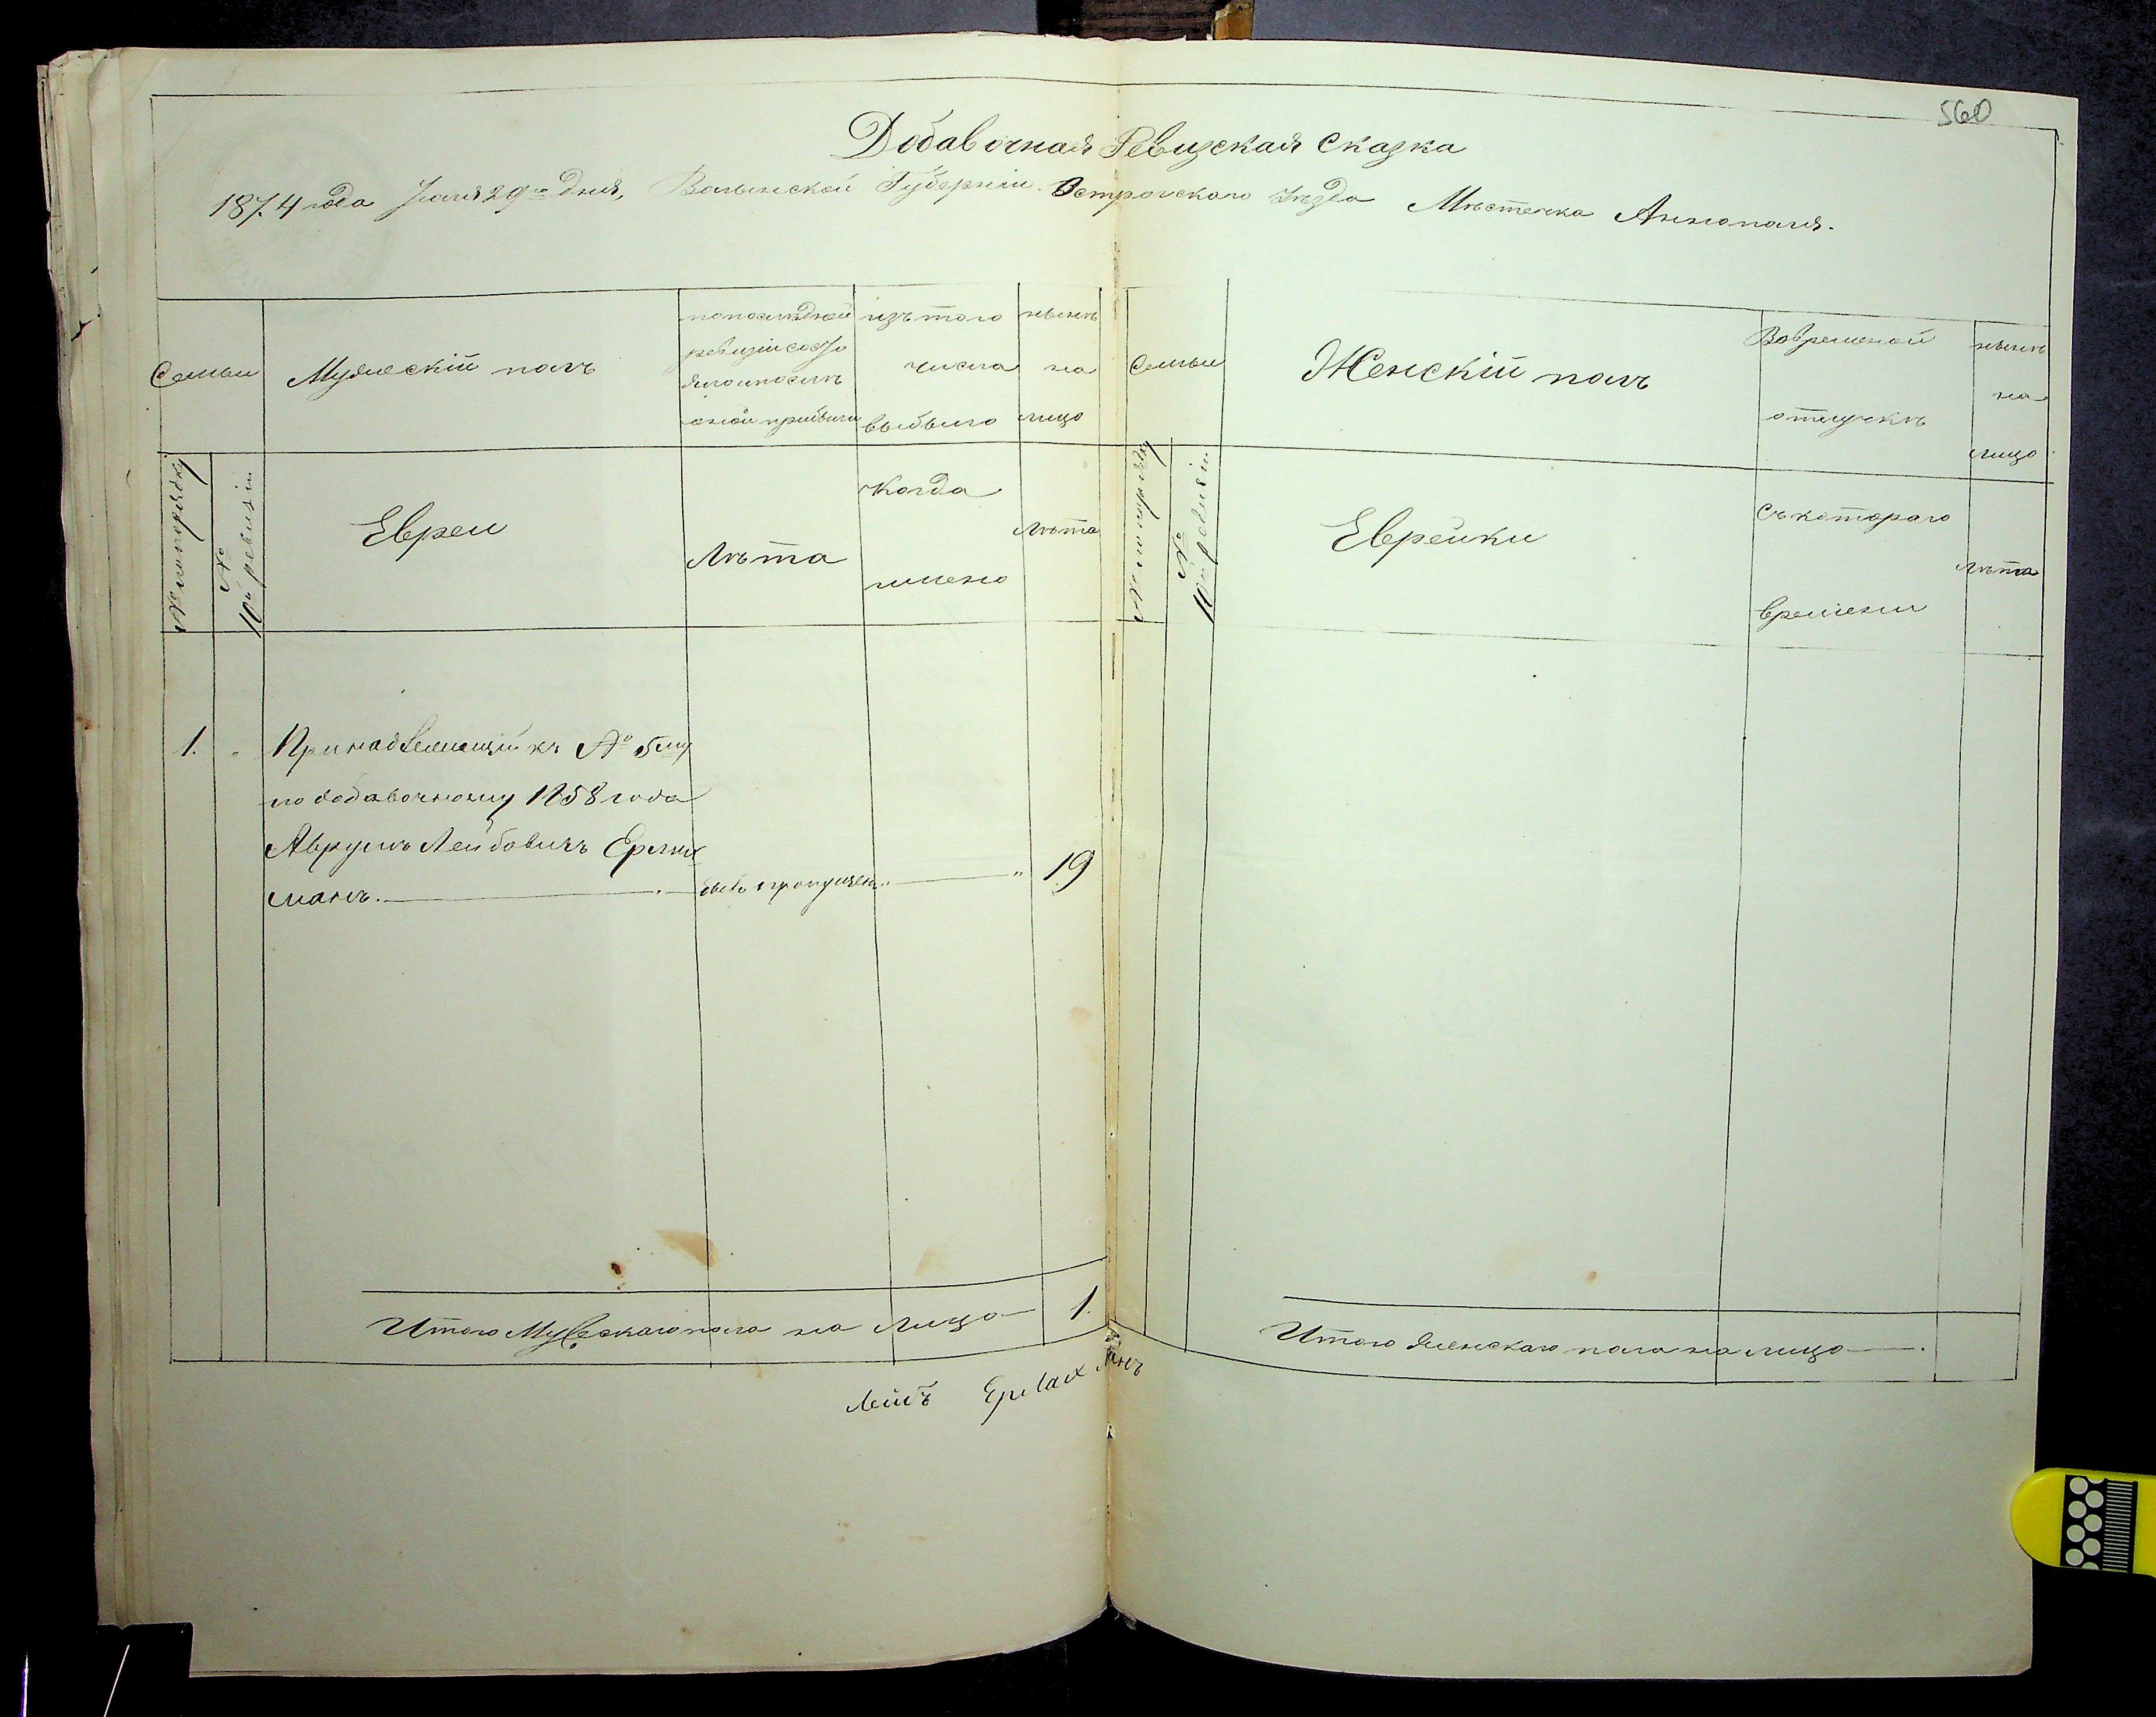 560
Добавочная Ревизская Сказка
1874 года Іюля 29го Дня, Волынской Губерніи Острогскаго Уѣзда Мѣстечка Аннополя.
Семьи
Мужескій полъ
по послѣдней
ревизіи состо
яло и послѣ
оной прибыли
изъ того
числа
выбыло
нынѣ
на
лицо
№ по порядку
№
10й ревизіи
Евреи
Лѣта
Когда
имено
Лѣта
1. "
Принадлежащій къ № 5му
по добавочному 1858 года
Аврумъ Лейбовичъ
манъ. былъ пропущен. " 19
Итого Мужескаго пола на лицо 1.
Лейбъ
Семьи
Женскій полъ
Во временной
отлучкѣ
нынѣ
на
лицо
№ по порядку
№
10й ревизіи
Еврейки
Съ котораго
времени
Лѣта
Итого женскаго пола на лицо .